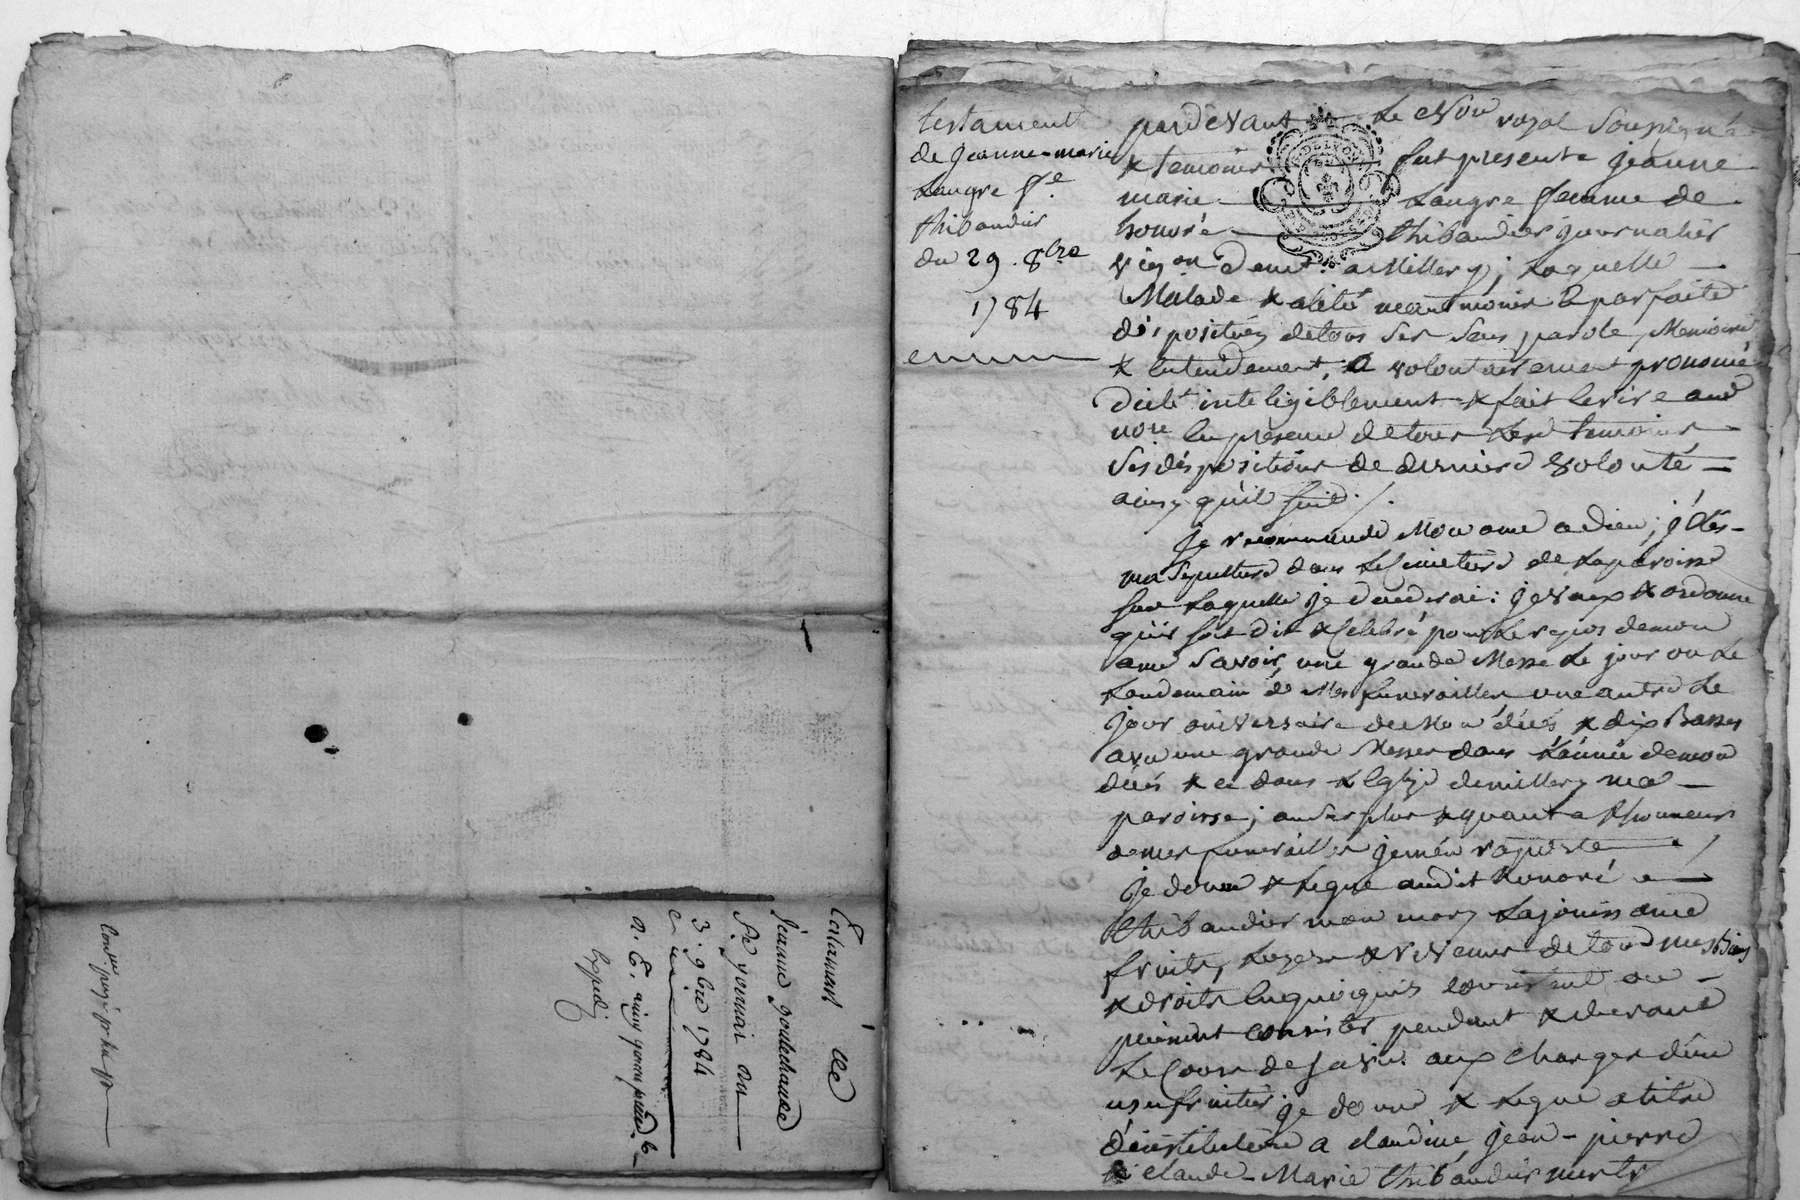 Testament de
Jeanne goutechaude
fe. yonnai du
3. 9bre 1784
Expedé
testament
de Jeanne-marie
Laugre fe
thibaudier
du 29. 8bre
1784
pardevant Le Nore royal Soussigné
& temoins fut presente jeanne
marie Laugre femme de
honoré thibaudier journalier
vigon demt a Millery; Laquelle
Malade & alité neantmoins En parfaite
disposition de tous Ses Sens parole, Memoire
& Entendement, a volontairement prononcé
dicté inteligiblement & fait Ecrire aud
nore En presence de tous Lesd temoins
Ses dispositions de derniere volonté
ainsy qu'il Suit ./.
Je recommande Mon ame a dieu; j'élis
ma Sepulture dans Le Cimetiere de La paroisse
Sur Laquelle je decederai: je veux & ordonne
qu'il soit dit & Celebré pour Le repos de mon
ame Savoir, une grande Messe Le jour ou Le
Lendemain de Mes funerailles une autre Le
jour aniversaire de Mon décés & dix Basses
avec une grande Messe dans L'année de mon
décés & ce dans L'Eglise de millery ma
paroisse; au Surplus & quant a L'honneur
de mes funerailles je m'en raporte
je donne & Legue audit honoré
thibaudier mon mary La jouissance
fruits, Loyers & revenus de tous mes Biens
& droits En quoi qu'ils consistent ou
puissent consister pendant & durant
Le Cours de Sa vie aux charges d'un
usufruitier je donne & Legue a titre
d'institution a claudine, jean-pierre
& claude-Marie thibaudier mes